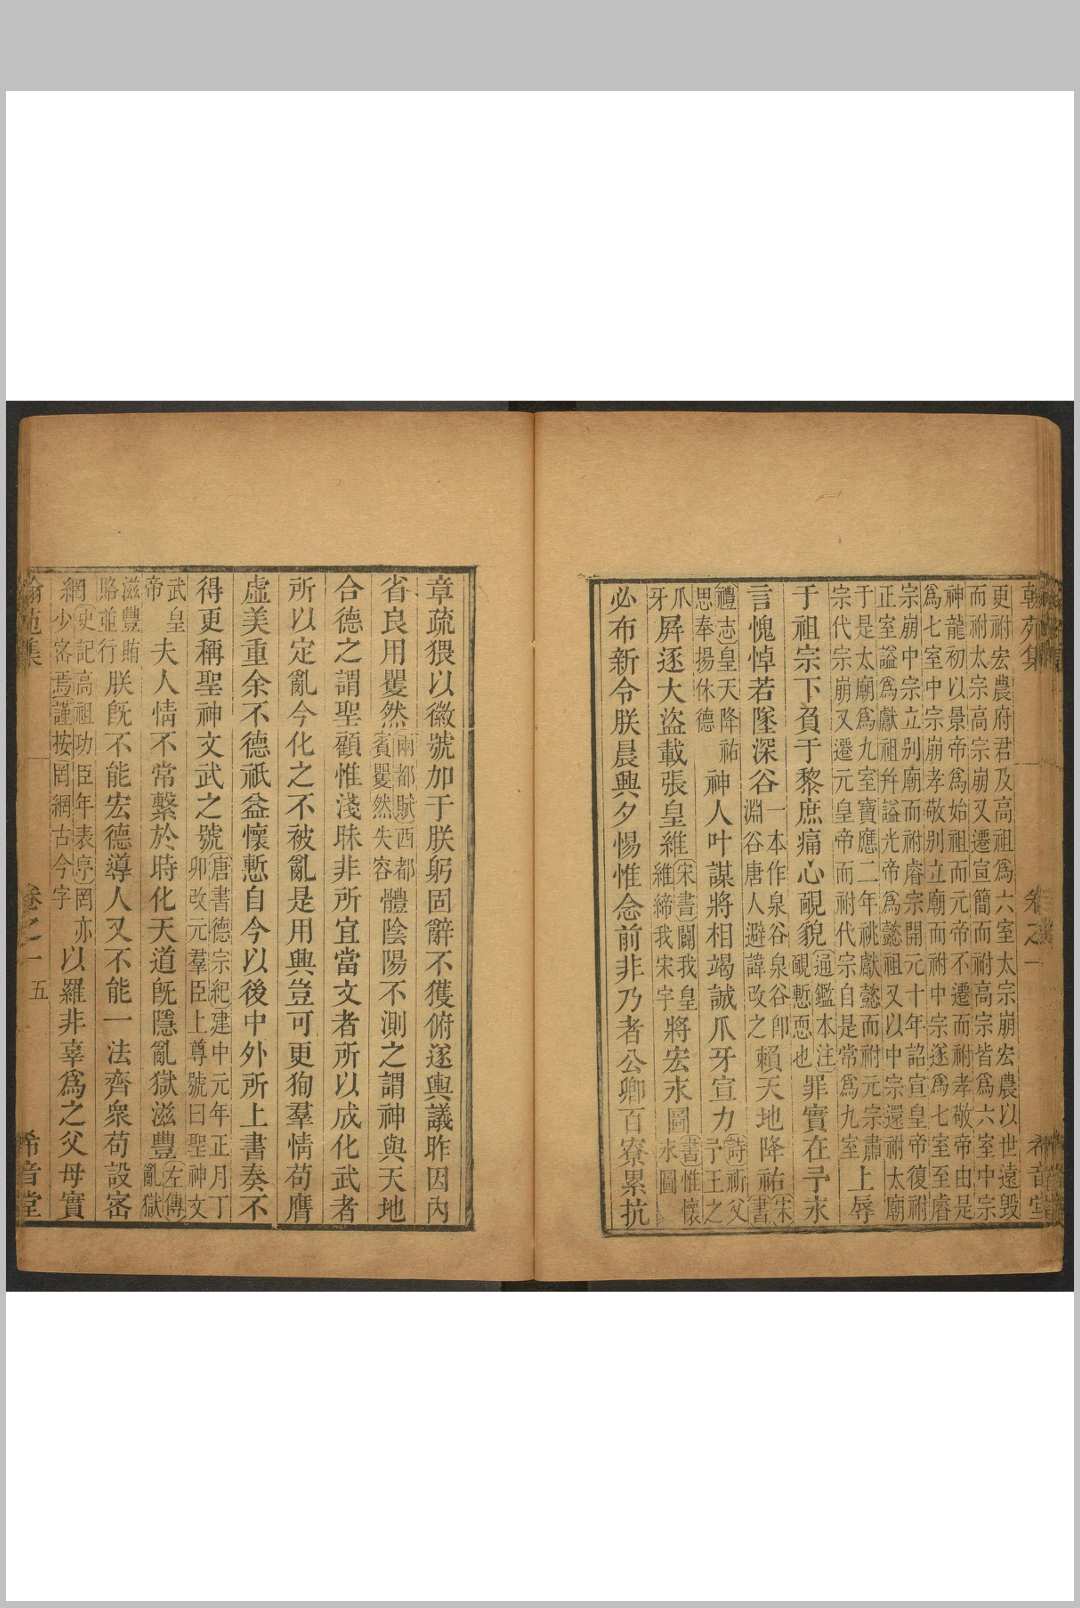 翰苑集 卷之一 希音堂
更祔宏農府君及高祖爲六室太宗崩宏農以世遠毀
而祔太宗高宗崩又遷宣簡而祔高宗皆爲六室中宗
神龍初以景帝爲始祖而元帝不遷而祔孝敬帝由是
爲七室中宗崩孝敬別立廟而祔中宗遂爲七室至睿
宗崩中宗立別廟而祔睿宗開元十年詔宣皇帝復祔
正室謚爲獻祖幷謚光帝爲懿祖又以中宗還祔太廟
于是太廟爲九室寶應二年祧獻懿而祔元宗肅
宗代宗崩又遷元皇帝而祔代宗自是常爲九室
上辱
于祖宗下負于黎庶痛心靦貌
通鑑本注
靦慙恧也
罪實在予永
言愧悼若墜深谷
一本作泉谷泉谷卽
淵谷唐人避諱改之
賴天地降祐
宋書
禮志皇天降祐
思奉揚休德
神人叶謀將相竭誠爪牙宣力
詩祈父
予王之
爪
牙
屏逐大盜載張皇維
宋書闢我皇
維締我宋宇
將宏永圖
書惟懷
永圖
必布新令朕晨興夕惕惟念前非乃者公卿百寮累抗
章疏猥以徽號加于朕躬固辭不獲俯遂輿議昨因內
省良用矍然
兩都賦西都
賓矍然失容
體陰陽不測之謂神與天地
合德之謂聖顧惟淺昧非所宜當文者所以成化武者
所以定亂今化之不被亂是用興豈可更狥羣情苟膺
虛美重余不德祇益懷慙自今以後中外所上書奏不
得更稱聖神文武之號
唐書德宗紀建中元年正月丁
卯改元羣臣上尊號曰聖神文
武皇
帝
夫人情不常繫於時化天道旣隱亂獄滋豐
左傳
亂獄
滋豐賄
賂並行
朕旣不能宏德導人又不能一法齊衆苟設密
網
史記高祖功臣年表序罔亦
少密焉謹按罔網古今字
以羅非辜爲之父母實
翰苑集 卷之一 五 希音堂